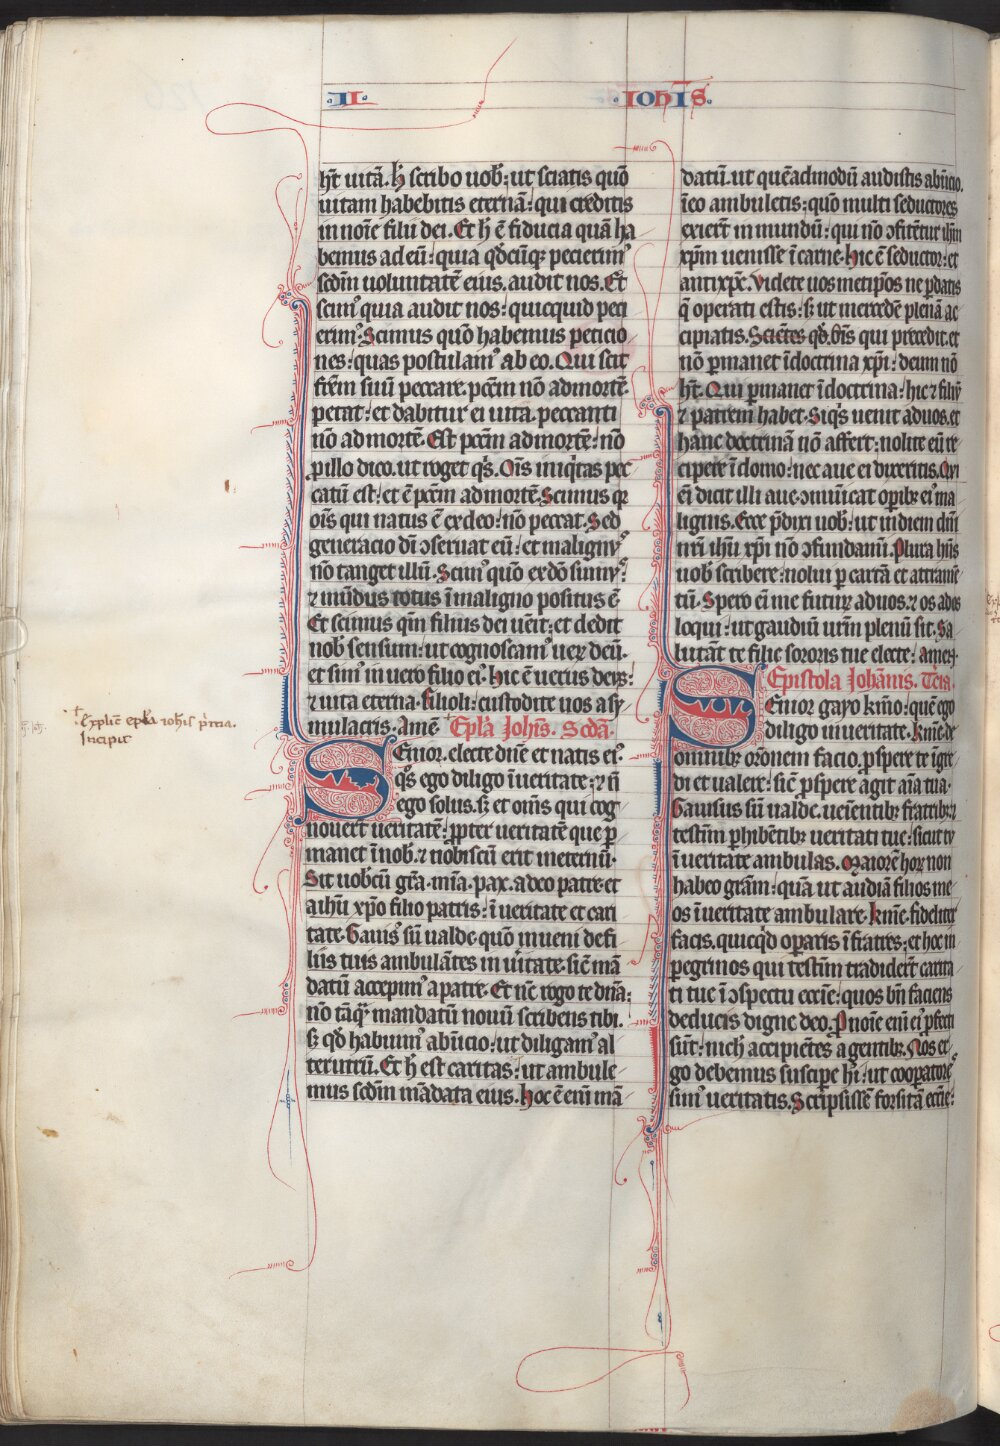 .II. .IohIs.
hꝛ̄t uitā. h̄ scribo uob̄: ut sciatis quō
uitam habebitis eternā: qui creditis
in noīe filii dei. Et h̄ ē fiducia quā ha
bemus ad eū: quia qd̄cūq; pecierimꝰ
scd̄m uoluntatē eius, audit nos. Et
scimꝰ quia audit nos: quicquid peti
erimꝰ. Scimus quō habemus peticio
nes: quas postulamꝰ ab eo. Qui scit
fr̄em suū peccare. pcc̄m nō ad mortē.
petat: et dabitur ei uita. peccanti
nō ad mortē. Est pcc̄m ad mortē: nō
p̱ illo dico. ut roget qs̄. Oīs iniqitas pec
catū est: et ē pcc̄m ad mortē. Scimus qꝛ
oīs qui natus ē ex deo: nō peccat. Sed
generacio dī ↄseruat eū: et malignꝰ
nō tanget illū. Scimꝰ quō ex dō sumꝰ:
⁊ mūdus totus ī maligno positus ē.
Et scimus qm̄ filius dei uēit: et dedit
nob̄ sensum: ut cognoscamꝰ ueꝝ deū.
et simꝰ in uero filio eiꝰ. hic ē uerus deus:
⁊ uita eterna. filioli: custodite uos a sy
mulacris. Amē. Epl̄a Joh̄is. Scd̄a.
Enior. electe dn̄e et natis eiꝰ.
qs̄ ego diligo ī ueritate: ⁊ n̄
ego solus. s; et om̄s qui cog
nouer̄t ueritatē: p̱pter ueritatē que ꝑ
manet ī nob̄. ⁊ nobiscū erit in eternū.
Sit uob̄cū gr̄a. mīa. pax. a deo patre et
a ih̄u xp̄o filio patris: ī ueritate et cari
tate. Gauisꝰ sū ualde quō inueni de fi
liis tuis ambulātes in u̅itate. sic̄ mā
datū accepimꝰ a patre. Et nc̄ rogo te dn̄a:
nō tāq̄ꝫ mandatū nouū scribens tibi.
s; qd̄ habuimꝰ ab īicio: ut diligamꝰ al
terutrū. Et h̄ est caritas: ut ambule
mus scd̄m mādata eius. hoc ē eni mā
datū. ut quēadmodū audistis ab īicio.
ī eo ambuletis: quō multi seductores
exier̄t in mundū: qui nō ↄfitētur ih̄m
xp̄m uenisse ī carne. hic ē seductor: et
antixp̄c. Videte uosmetip̄os ne ꝑdatis
q̄ operati estis: s; ut mercedē plenā ac
cipiatis. Scientes qd̄. oīs qui precedit. et
nō ꝑmanet ī doctrina xp̄i: deum nō
h̄t. Qui ꝑmanet ī doctrina: hic ⁊ filiū
⁊ patrem habet. Siqs̄ uenit ad uos. et
hanc doctrinā nō affert: nolite eū re
cipere ī domo: nec aue ei dixeritis. Qui
ei dicit illi aue. ↄmūicat opib; eiꝰ ma
lignis. Ecce p̄dixi uob̄: ut in diem dn̄i
nr̄i ih̄u xp̄i nō ↄfundamī. Plura hn̄s
uob̄ scribere: nolui ꝑ cartā et atramē
tū. Spero ei me futuꝝ ad uos. ⁊ os ad os
loqui: ut gaudiū ur̄m plenū sit. Sa
lutāt te filie sororis tue electe: amen.
Epistola Johānis. Tc̄ia.
Enior gayo kmo: quē ego
diligo in ueritate. kme. de
omnib; orōnem facio. p̱spere te īgre
di et ualere: sic̄ p̱spere agit aīa tua.
Gauisus sū ualde. ueientib; fratrib; ⁊
testim̄ ꝑhibētib; ueritati tue: sicut tu
ī ueritate ambulas. Maiorē hoꝝ non
habeo gr̄am: quā ut audiā filios me
os ī ueritate ambulare. kme. fideliter
facis. quicqd̄ oꝑaris ī fratres: et hoc in
peg̱rinos qui testim̄ tradider̄t carita
ti tue ī ↄspectu eccīe: quos bn̄ faciens
deduces digne deo. P noīe eni eiꝰ p̱fecti
sūt: nich̄ accipiētes a gentib;. Nos er
go debemus suscipe hiꝰ: ut cooꝑatores
simꝰ ueritatis. Scripsissē forsitā eccīe:
Explic̄ epl̄a ioh̄is p̄ma.
Incipit